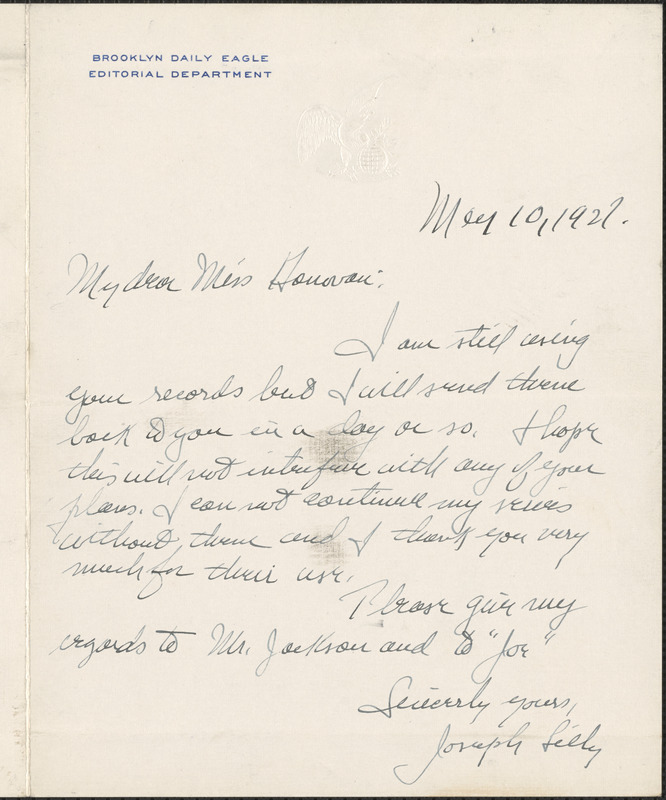 BROOKLYN DAILY EAGLE
EDITORIAL DEPARTMENT
May 10, 1927.
My dear Miss Donovan:
I am still using
your records but I will send them
back to you in a day or so. I hope
this will not interfere with any of your
plans. I can not continue my series
without them and I thank you very
much for their use.
Please give my
regards to Mr. Jackson and to "Joe"
Sincerely yours,
Joseph Lilly